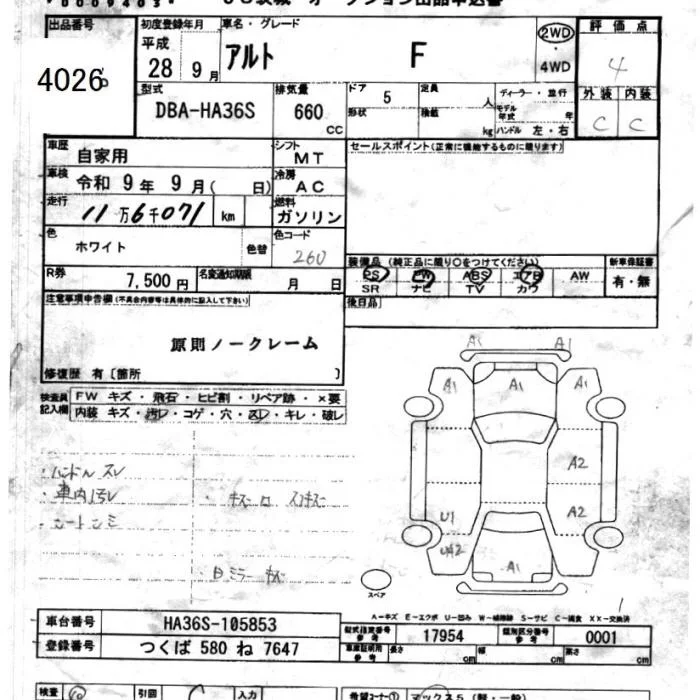 出品番号 初度登録年月 車名・グレード 2WD 評価点
4026 平成 28年 9月 アルト F ・ 4WD 4
型式 排気量 ドア 定員 ディーラー・並行 外装 内装
DBA-HA36S 660 CC 5 形状 人 積載 kg モデル年式 年 ハンドル 左・右 C C
車歴 自家用 シフト MT セールスポイント(正常に機能するものに限ります)
車検 令和 9年 9月( 日) 冷房 AC
走行 11万6千071 km 燃料 ガソリン
色 ホワイト 色替 色コード 260 装備品(純正品に限り〇をつけてください) 新車保証書
R券 7,500円 名変通知期限 月 日 PS PW ABS エアB AW 有・無
SR ナビ TV カワ
注意事項申告欄(不具合内容等は具体的に記入して下さい) 後日品
原則ノークレーム
修復歴 有[箇所 ]
検査員記入欄 FW キズ・飛石・ヒビ割・リペア跡・×要
内装 キズ・汚レ・コゲ・穴・スレ・キレ・破レ
A1 A1
A1 A1 A1
・ハンドル スレ A2
・車内汚レ
・シートシミ U1 A2
UA2 A1
スペア
A-キズ E-エクボ U-凹み W-補修跡 S-サビ C-腐食 XX-交換済
車台番号 HA36S-105853 型式指定番号 参考 17954 類別区分番号 参考 0001
登録番号 つくば 580 ね 7647 車庫証明用 参考 長さ cm 幅 cm 高さ cm
検査 引回 入力 希望コーナー① マックス5(軽・一般)